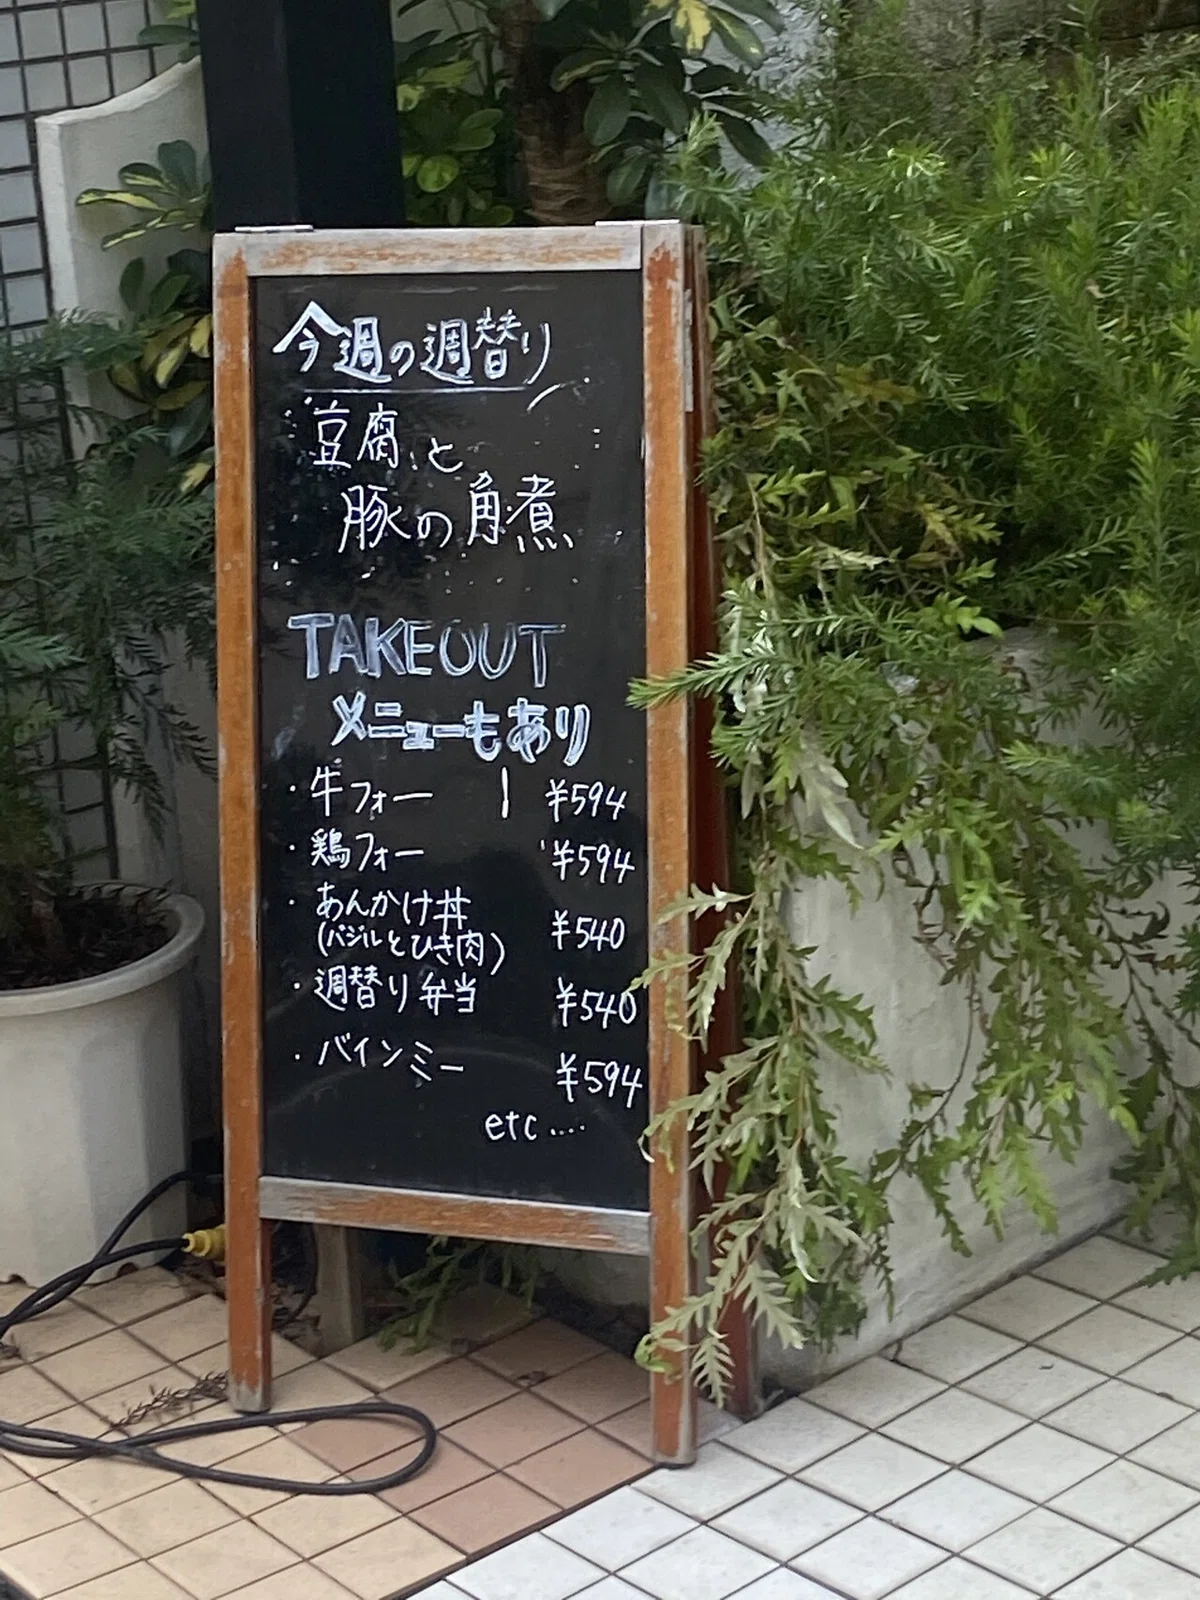 今週の週替り
豆腐と
豚の角煮
TAKEOUT
メニューもあり
・牛フォー ¥594
・鶏フォー ¥594
・あんかけ丼 ¥540
(バジルとひき肉)
・週替り弁当 ¥540
・バインミー ¥594
etc....